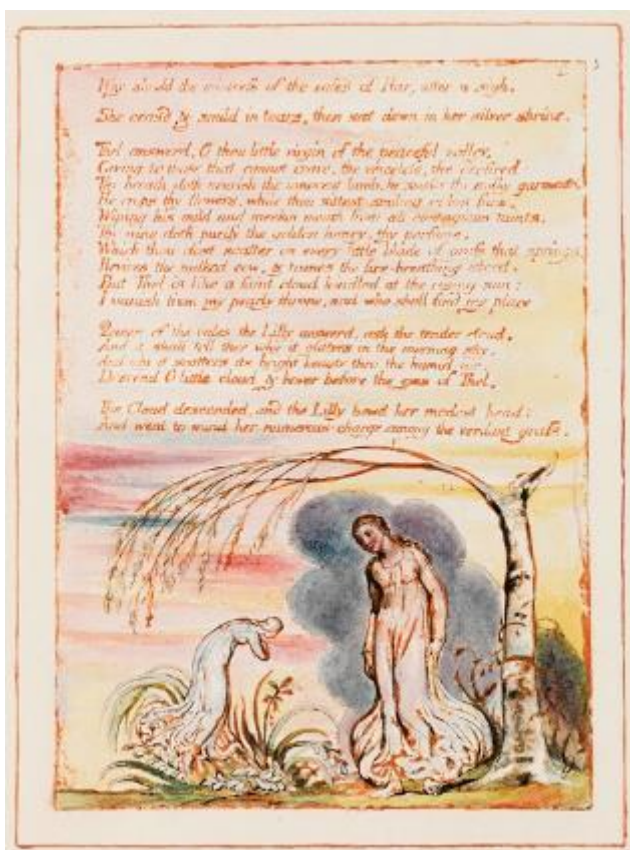 Why should the mistress of the vales of Har, utter a sigh.
She ceasd & smild in tears, then sat down in her silver shrine.
Thel answerd, O thou little virgin of the peaceful valley.
Giving to those that cannot crave, the voiceless, the
Thy breath doth nourish the innocent lamb, he smells thy milky garments
He crops thy flowers, while thou sittest smiling in his face,
Wiping his mild and meekin mouth from all contagious taints.
Thy wine doth purify the golden honey, thy perfume,
Which thou dost scatter on every little blade of grass that springs
Revives the milked cow, & tames the fire-breathing steed.
But Thel is like a faint cloud kindled at the rising sun:
I vanish from my pearly throne, and who shall find my place
Queen of the vales the Lilly answerd, ask the tender cloud,
And it shall tell thee why it glitters in the morning sky,
And why it scatters its bright beauty thro the humid air.
Descend O little cloud & hover before the eyes of Thel.
The Cloud descended, and the Lilly bowd her modest head:
And went to mind her numerous charge among the verdant grass.